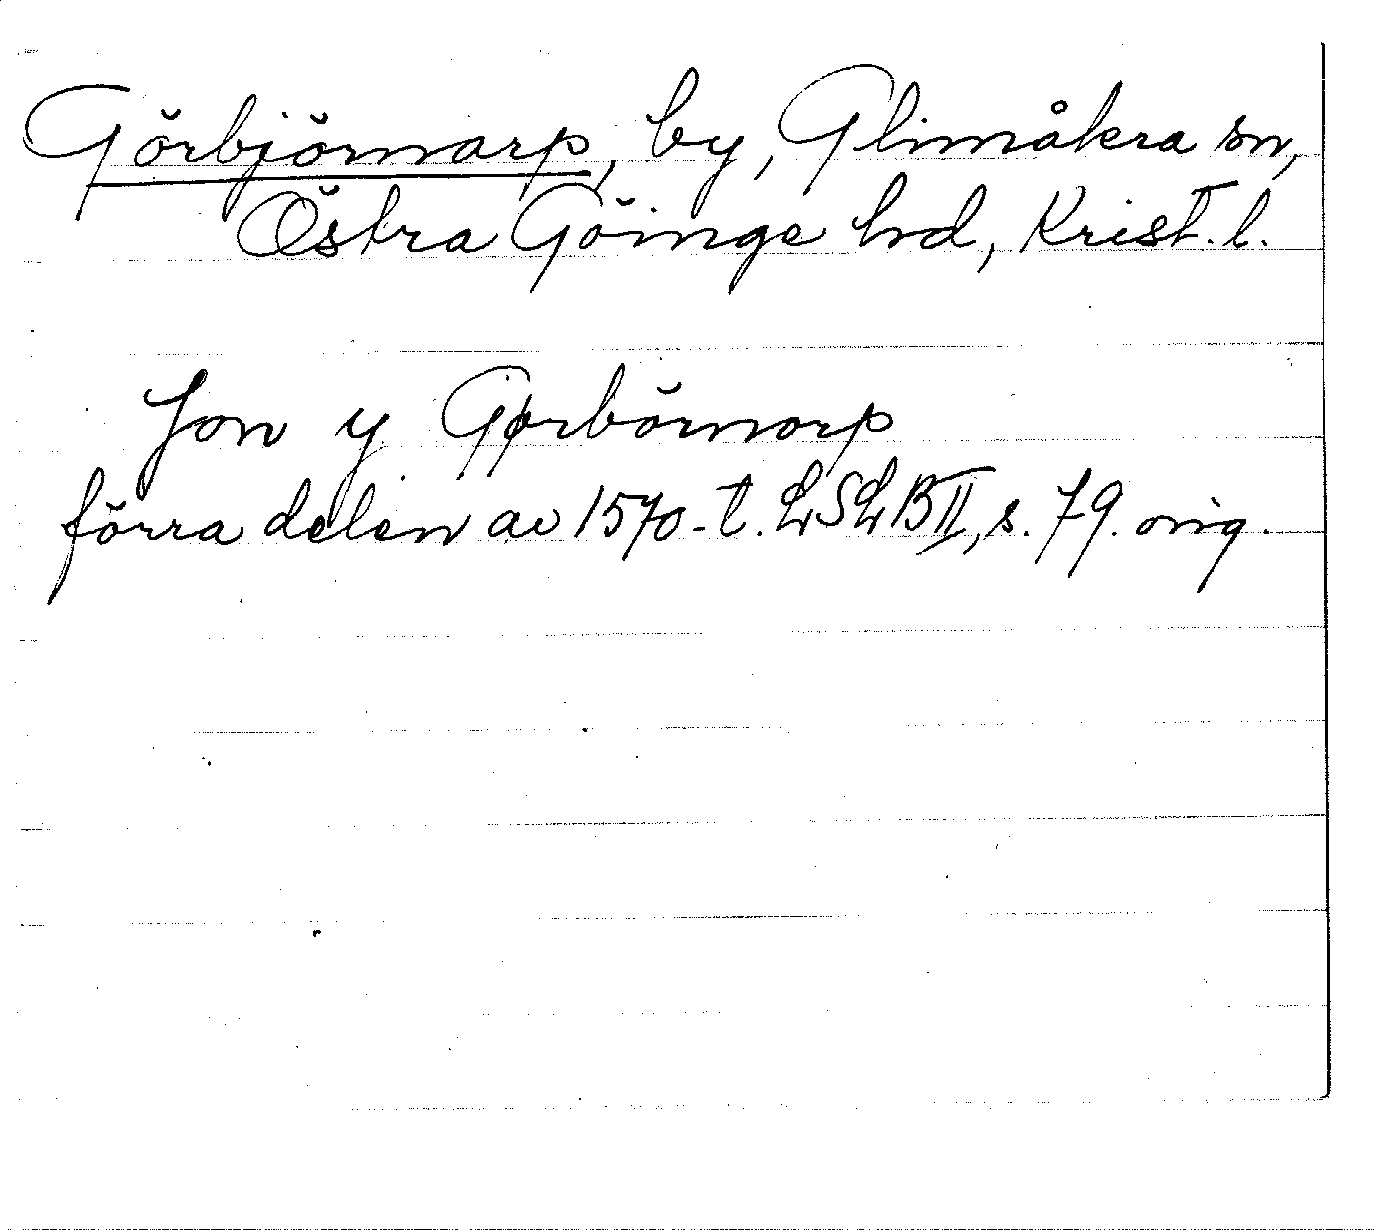 Görbjörnarp, by, Glimåkra sn,
Östra Göinge hd, Krist. l.
Jon y Gørbörnorp
förra delen av 1570-t. LSLB II, s. 79. orig.